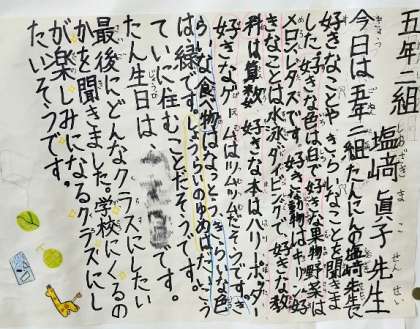 五年二組 塩﨑眞子先生
しおざき ま こ せんせい
今日は五年二組たんにんの塩﨑先生に
好きなことやきらいなことを聞きま
した。好きな色は白で好きな果物野菜は
メロン、レタスです。好きな動物はキリン。好
きなことは水泳、ダイビングで好きな教
科は算数。好きな本はハリーポッター
好きなゲームはツムツムだそうです。き
らいな食べ物はなっとう。きらいな色
は緑です。しょうらいのゆめは
ていに住むことだそうです。
たん生日は、です。
最後にどんなクラスにしたい
かを聞きました。学校にくるの
が楽しみになるクラスにし
たいそうです。